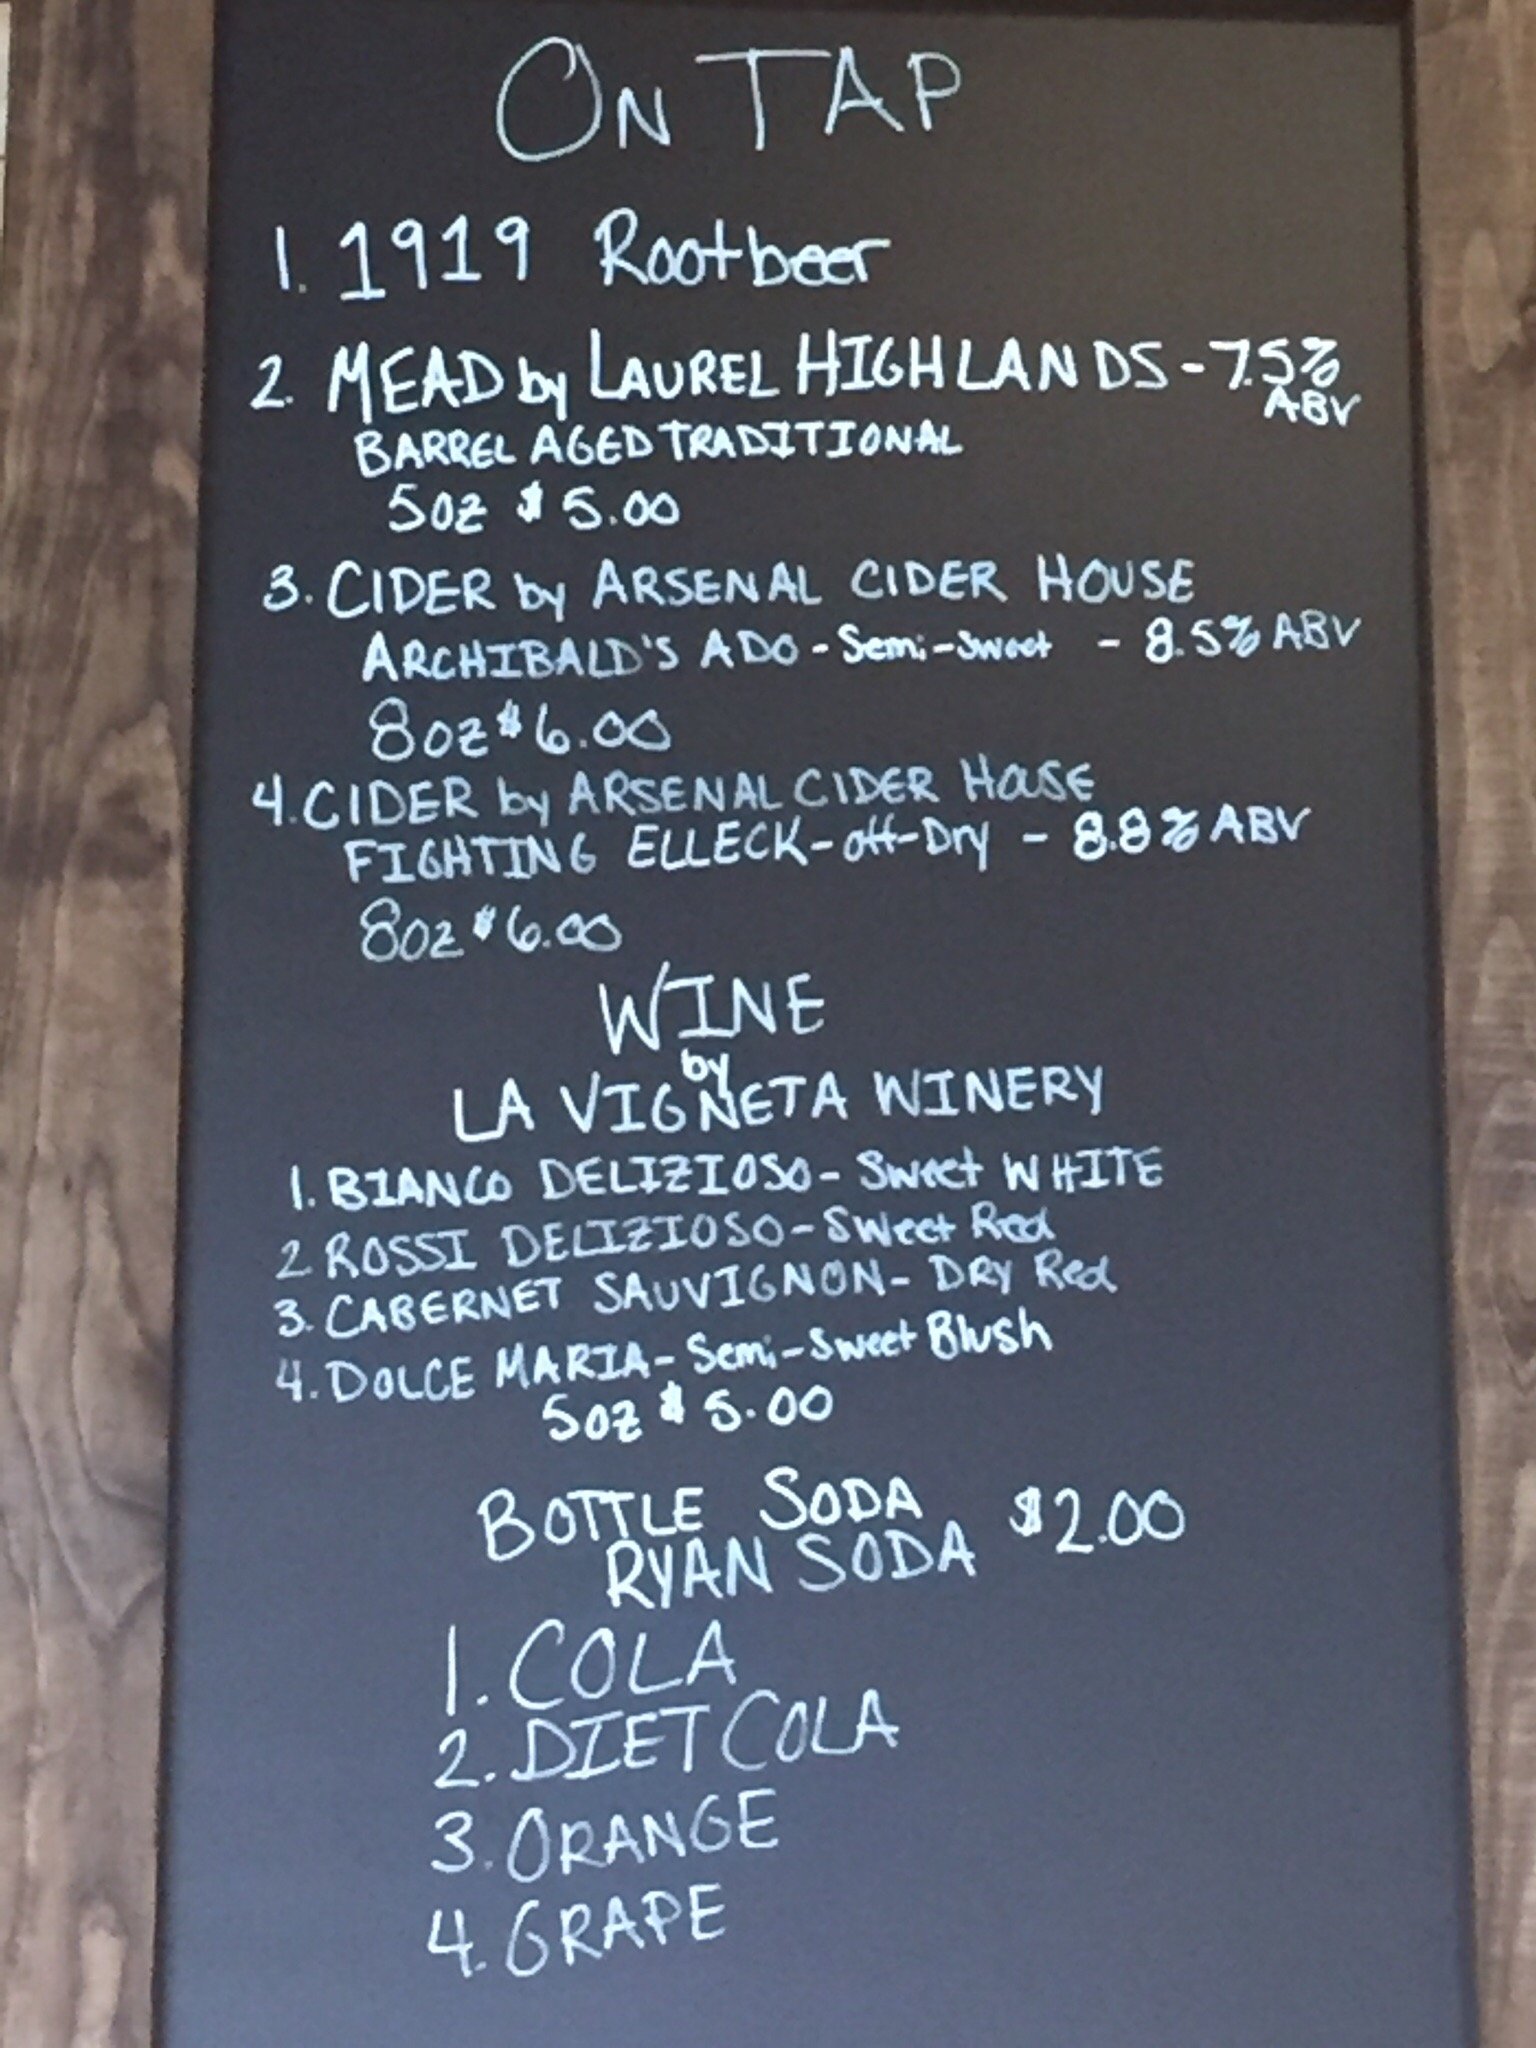 ON TAP
1. 1919 Rootbeer
2. MEAD by LAUREL HIGHLANDS - 7.5%
ABV
BARREL AGED TRADITIONAL
5oz $5.00
3. CIDER by ARSENAL CIDER HOUSE
ARCHIBALD'S ADO - Semi-Sweet - 8.5% ABV
8oz $6.00
4. CIDER by ARSENAL CIDER HOUSE
FIGHTING ELLECK - off-Dry - 8.8% ABV
8oz $6.00
WINE
by
LA VIGNETA WINERY
1. BIANCO DELIZIOSO - Sweet WHITE
2 ROSSI DELIZIOSO - Sweet Red
3. CABERNET SAUVIGNON - DRY Red
4. DOLCE MARIA - Semi-Sweet Blush
5oz $5.00
BOTTLE SODA $2.00
RYAN SODA
1. COLA
2. DIET COLA
3. ORANGE
4. GRAPE